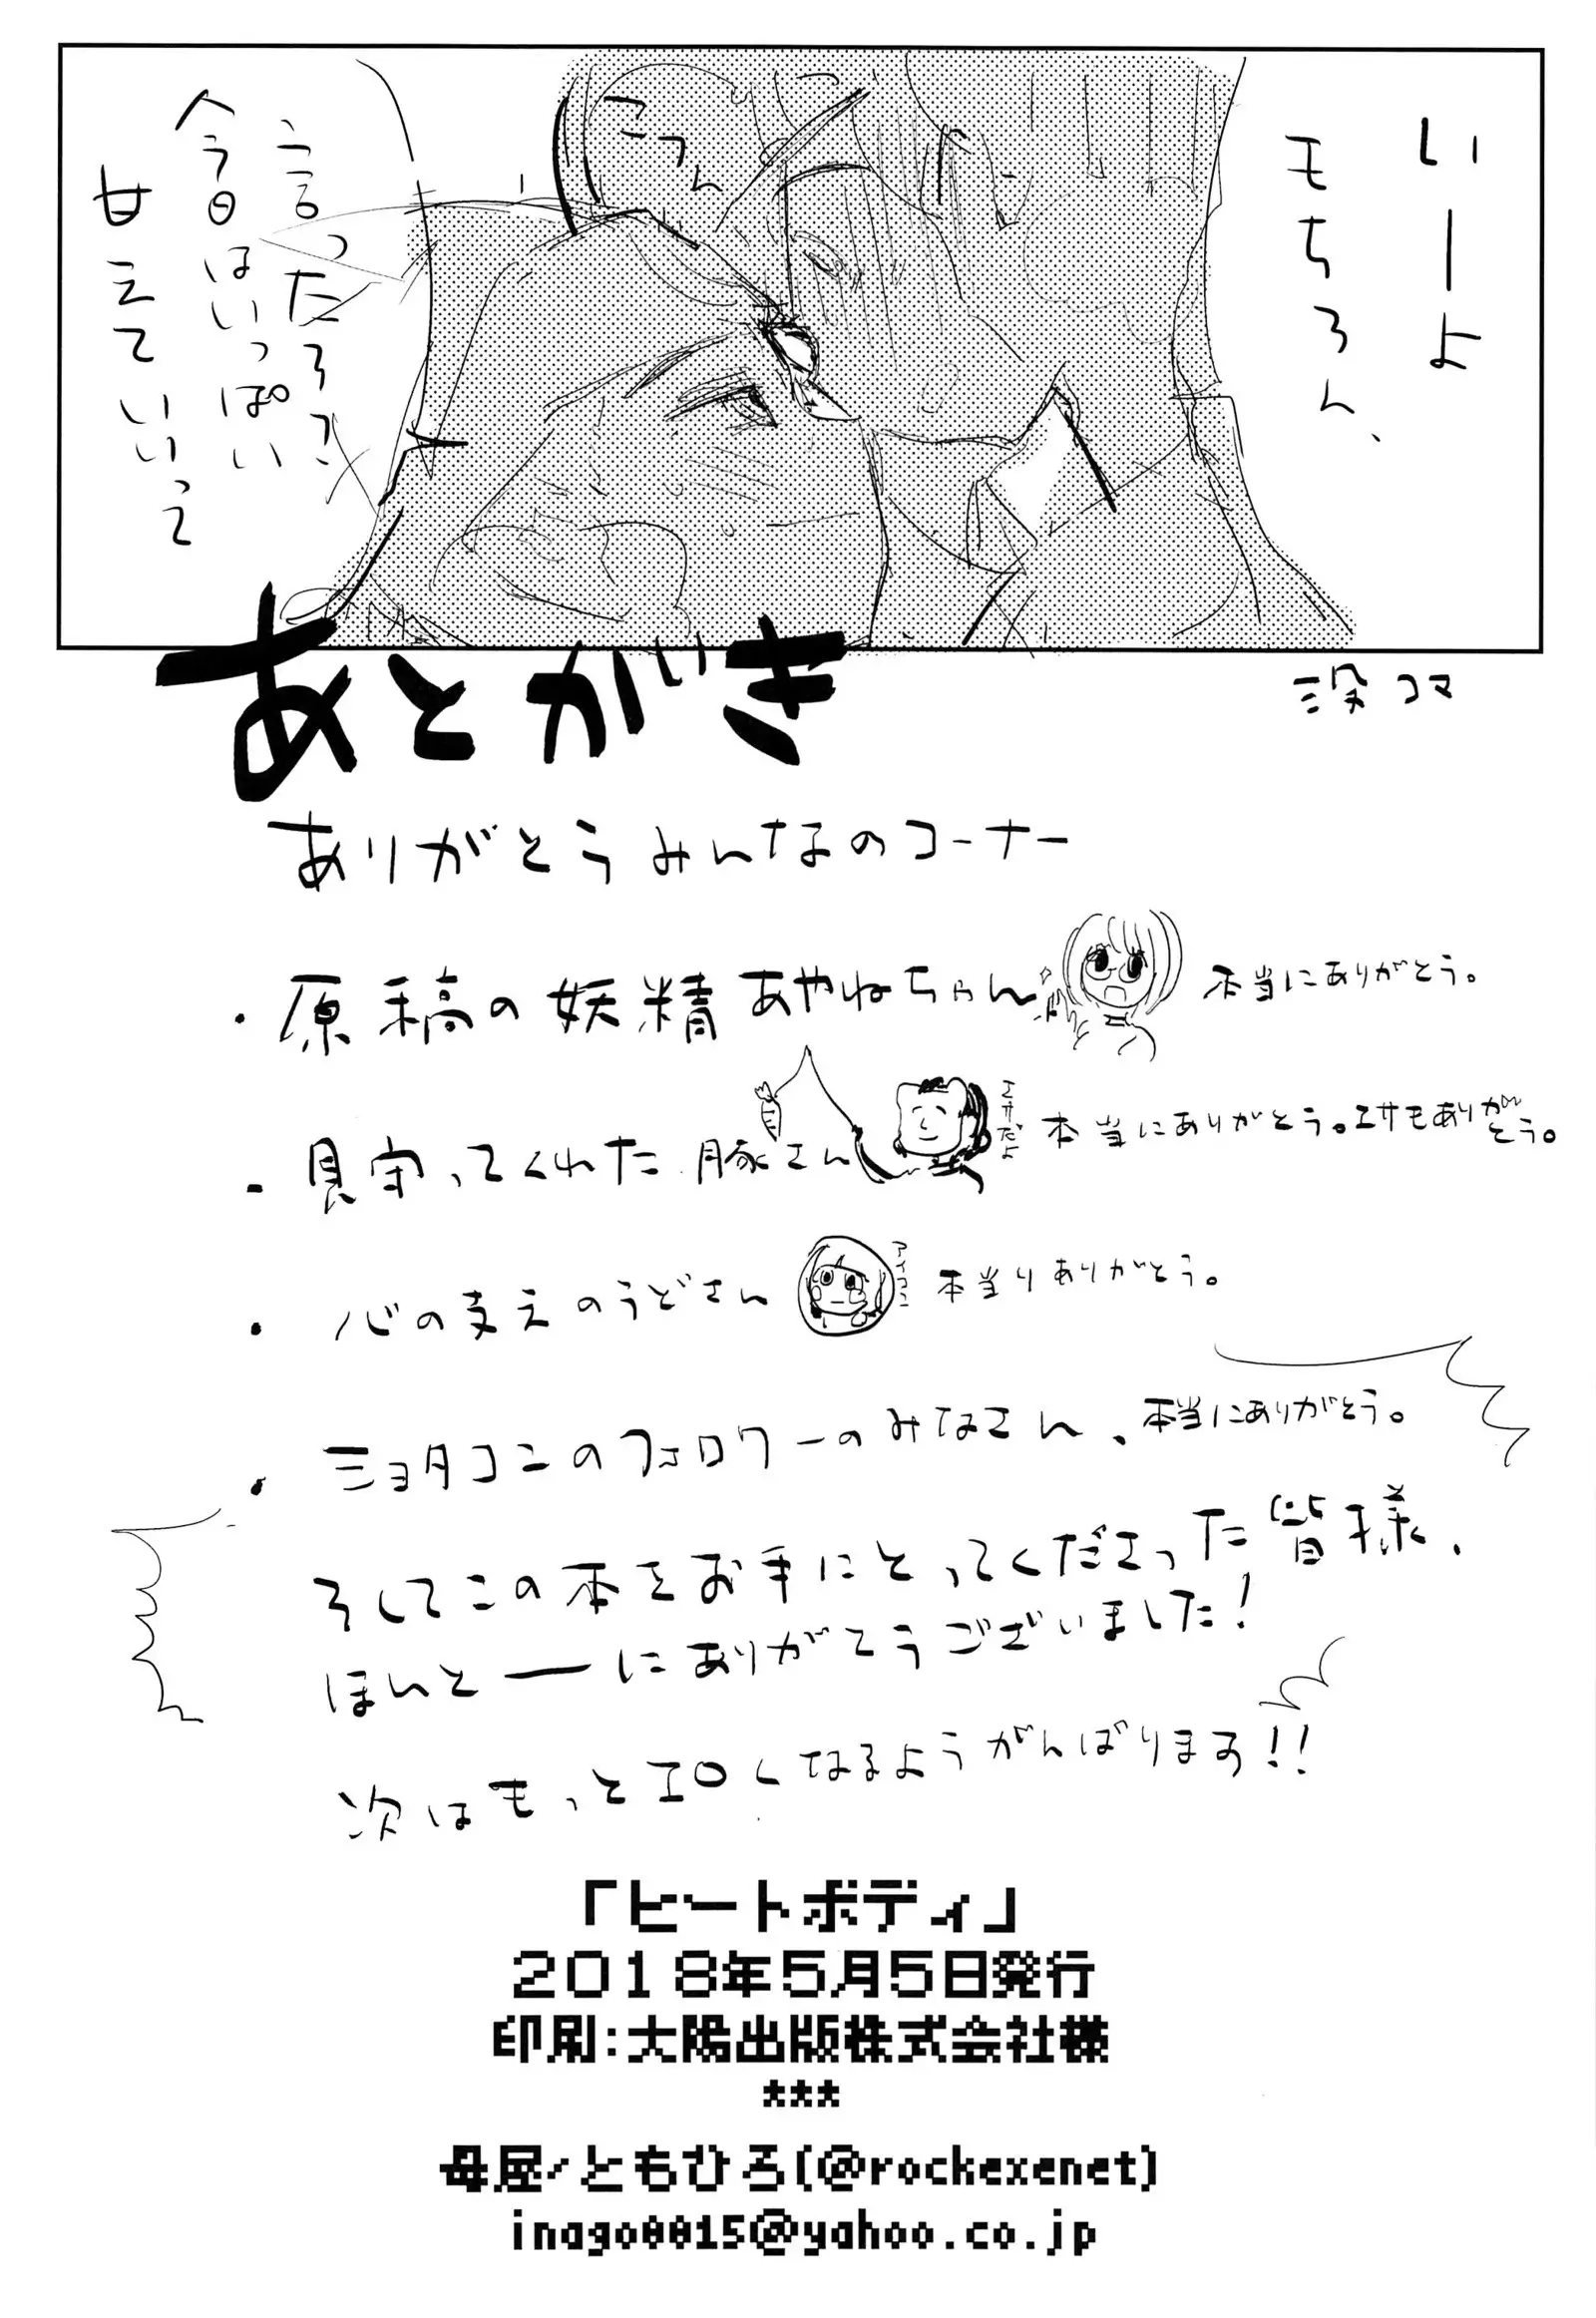 いーよ
モちろん、
こつん
言ったろ？
今日はいっぱい
甘えていいって
没コマ
あとがき
ありがとうみんなのコーナー
・原稿の妖精あやねちゃん 本当にありがとう。
・見守ってくれた豚さん エサだよ 本当にありがとう。エサもありがとう。
・心の支えのうどさん アイコン 本当りありがとう。
・ショタコンのフォロワーのみなさん、本当にありがとう。
そしてこの本をお手にとってくださった皆様、
ほんとーにありがとうございました！
次はもっとエロくなるようがんばります！！
「ヒートボディ」
2018年5月5日発行
印刷：大陽出版株式会社様
***
母屋/ともひろ(@rockexenet)
inago0015@yahoo.co.jp